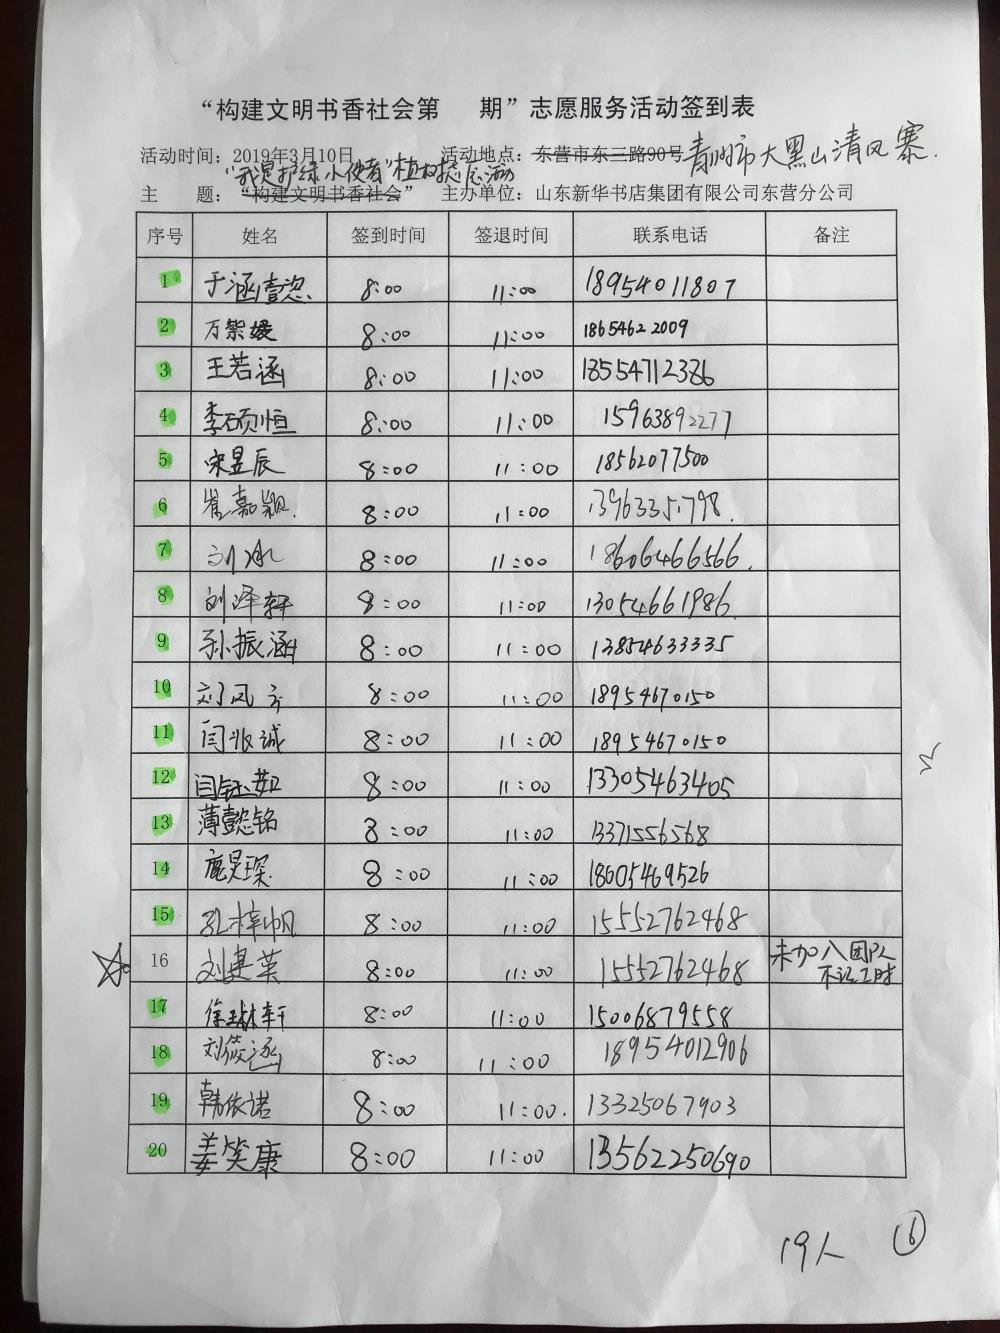 “构建文明书香社会第 期”志愿服务活动签到表
活动时间：2019年3月10日 活动地点：东营市东三路90号 青州市大黑山清风寨.
“我是护绿小使者”植树志愿活动
主 题：“构建文明书香社会” 主办单位：山东新华书店集团有限公司东营分公司
序号 姓名 签到时间 签退时间 联系电话 备注
1 于涵壹 8:00 11:00 18954011807
2 万絮媛 8:00 11:00 1865462 2009
3 王若涵 8:00 11:00 18554712386
4 李硕恒 8:00 11:00 15963892277
5 宋昱辰 8:00 11:00 18562077500
6 崔嘉颖. 8:00 11:00 13963351798.
7 刘冰 8:00 11:00 18606466566.
8 刘泽轩 8:00 11:00 13054661986
9 孙振涵 8:00 11:00 13854633335
10 刘凤芹 8:00 11:00 18954670150
11 闫兆诚 8:00 11:00 18954670150
12 闫钰茹 8:00 11:00 13305463405
13 薄懿铭 8:00 11:00 13371556568
14 庞昊琛 8:00 11:00 18605469526
15 孔梓帆 8:00 11:00 15552762468
16 刘建英 8:00 11:00 15552762468 未加入团队
不记工时
17 徐琳轩 8:00 11:00 15006879558
18 刘筱涵 8:00 11:00 18954012906
19 韩依诺 8:00 11:00. 13325067903
20 姜笑康 8:00 11:00 13562250690
19人 ⑥